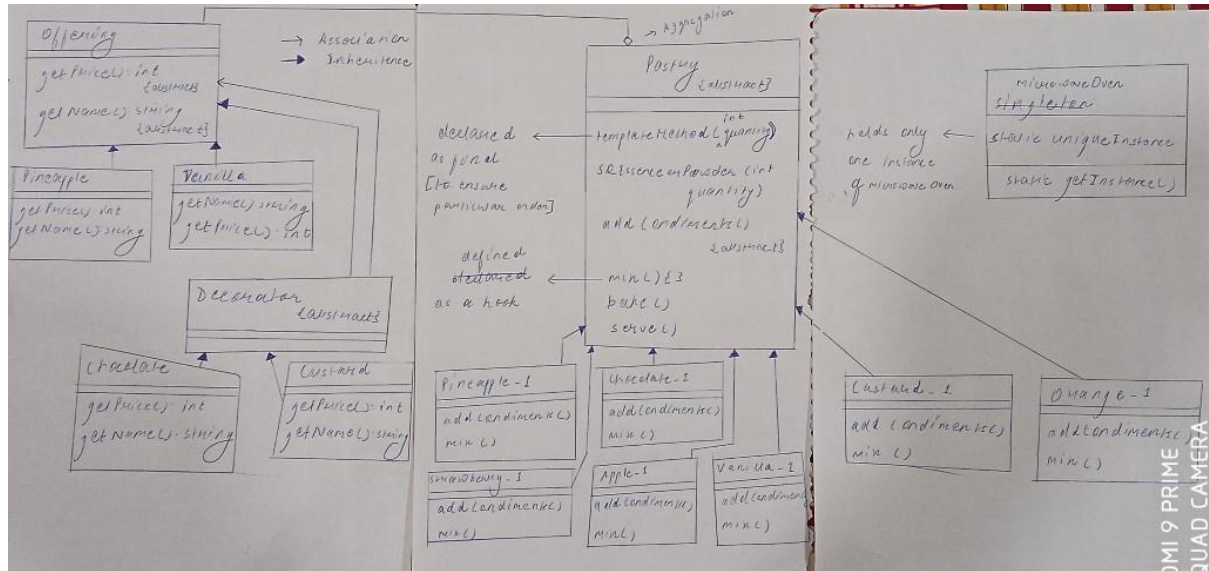 Offering
getPrice(): int
{abstract}
getName(): string
{abstract}
→ Association
→ Inheritence
Pineapple
getPrice(): int
getName(): string
Vanilla
getName(): string
getPrice(): int
Decorator
{abstract}
Chocolate
getPrice(): int
getName(): string
Custard
getPrice(): int
getName(): string
Aggregation
Pastry
{abstract}
int
templateMethod(quantity)
(int
quantity)
addCondiments()
{abstract}
mix() {}
bake()
serve()
declared
as final
[to ensure
particular order]
defined
declared
as a hook
Pineapple-1
addCondiments()
mix()
Chocolate-1
addCondiments()
mix()
Strawberry-1
addCondiments()
mix()
Apple-1
addCondiments()
mix()
Vanilla-1
addCondiments
mix()
microwaveOven
singleton
static uniqueInstance
static getInstance()
holds only
one instance
of microwaveOven
Custard-1
addCondiments()
mix()
Orange-1
addCondiments()
mix()
OMI 9 PRIME
QUAD CAMERA